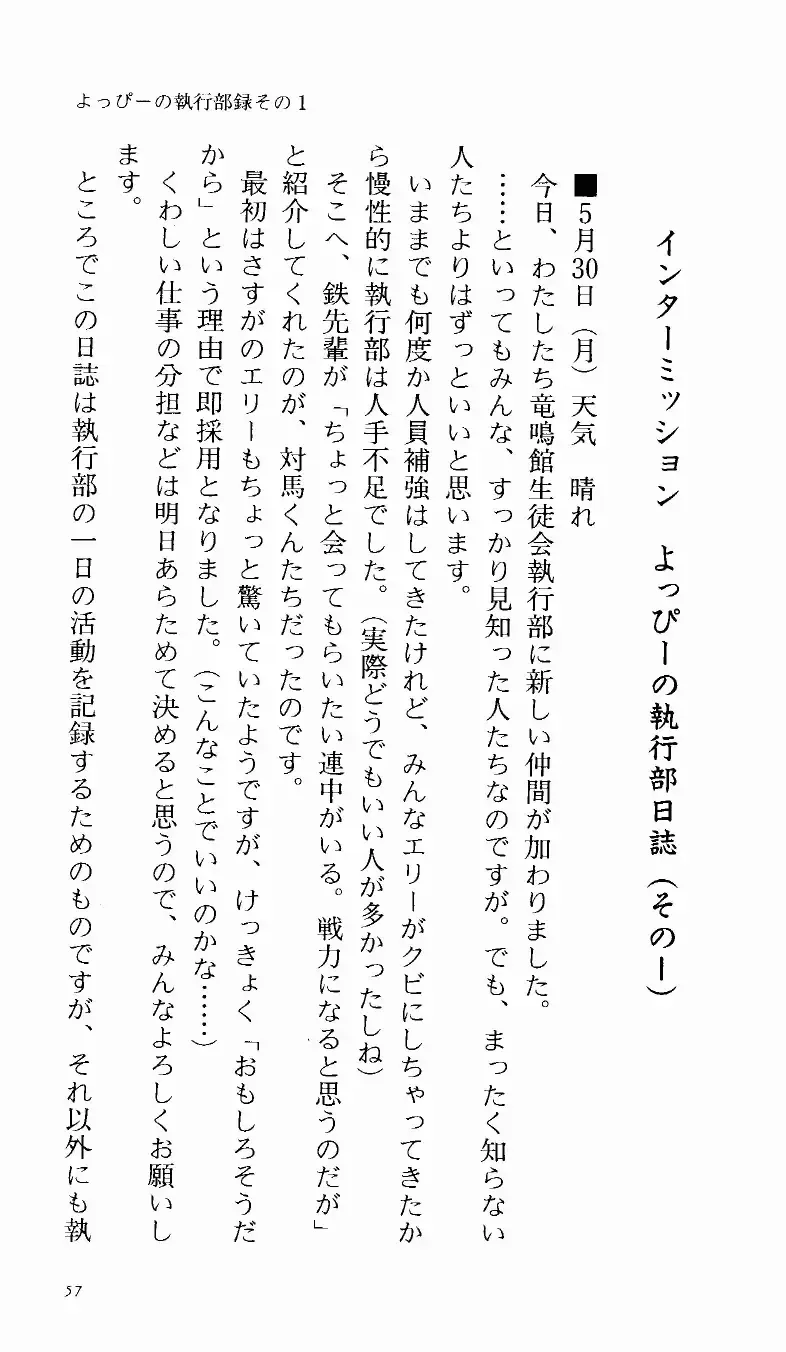 よっぴーの執行部録その1
インターミッション　よっぴーの執行部日誌（その一）
■5月30日（月）天気　晴れ
今日、わたしたち竜鳴館生徒会執行部に新しい仲間が加わりました。
……といってもみんな、すっかり見知った人たちなのですが。でも、まったく知らない
人たちよりはずっといいと思います。
いままでも何度か人員補強はしてきたけれど、みんなエリーがクビにしちゃってきたか
ら慢性的に執行部は人手不足でした。（実際どうでもいい人が多かったしね）
そこへ、鉄先輩が「ちょっと会ってもらいたい連中がいる。戦力になると思うのだが」
と紹介してくれたのが、対馬くんたちだったのです。
最初はさすがのエリーもちょっと驚いていたようですが、けっきょく「おもしろそうだ
から」という理由で即採用となりました。（こんなことでいいのかな……）
くわしい仕事の分担などは明日あらためて決めると思うので、みんなよろしくお願いし
ます。
ところでこの日誌は執行部の一日の活動を記録するためのものですが、それ以外にも執
57